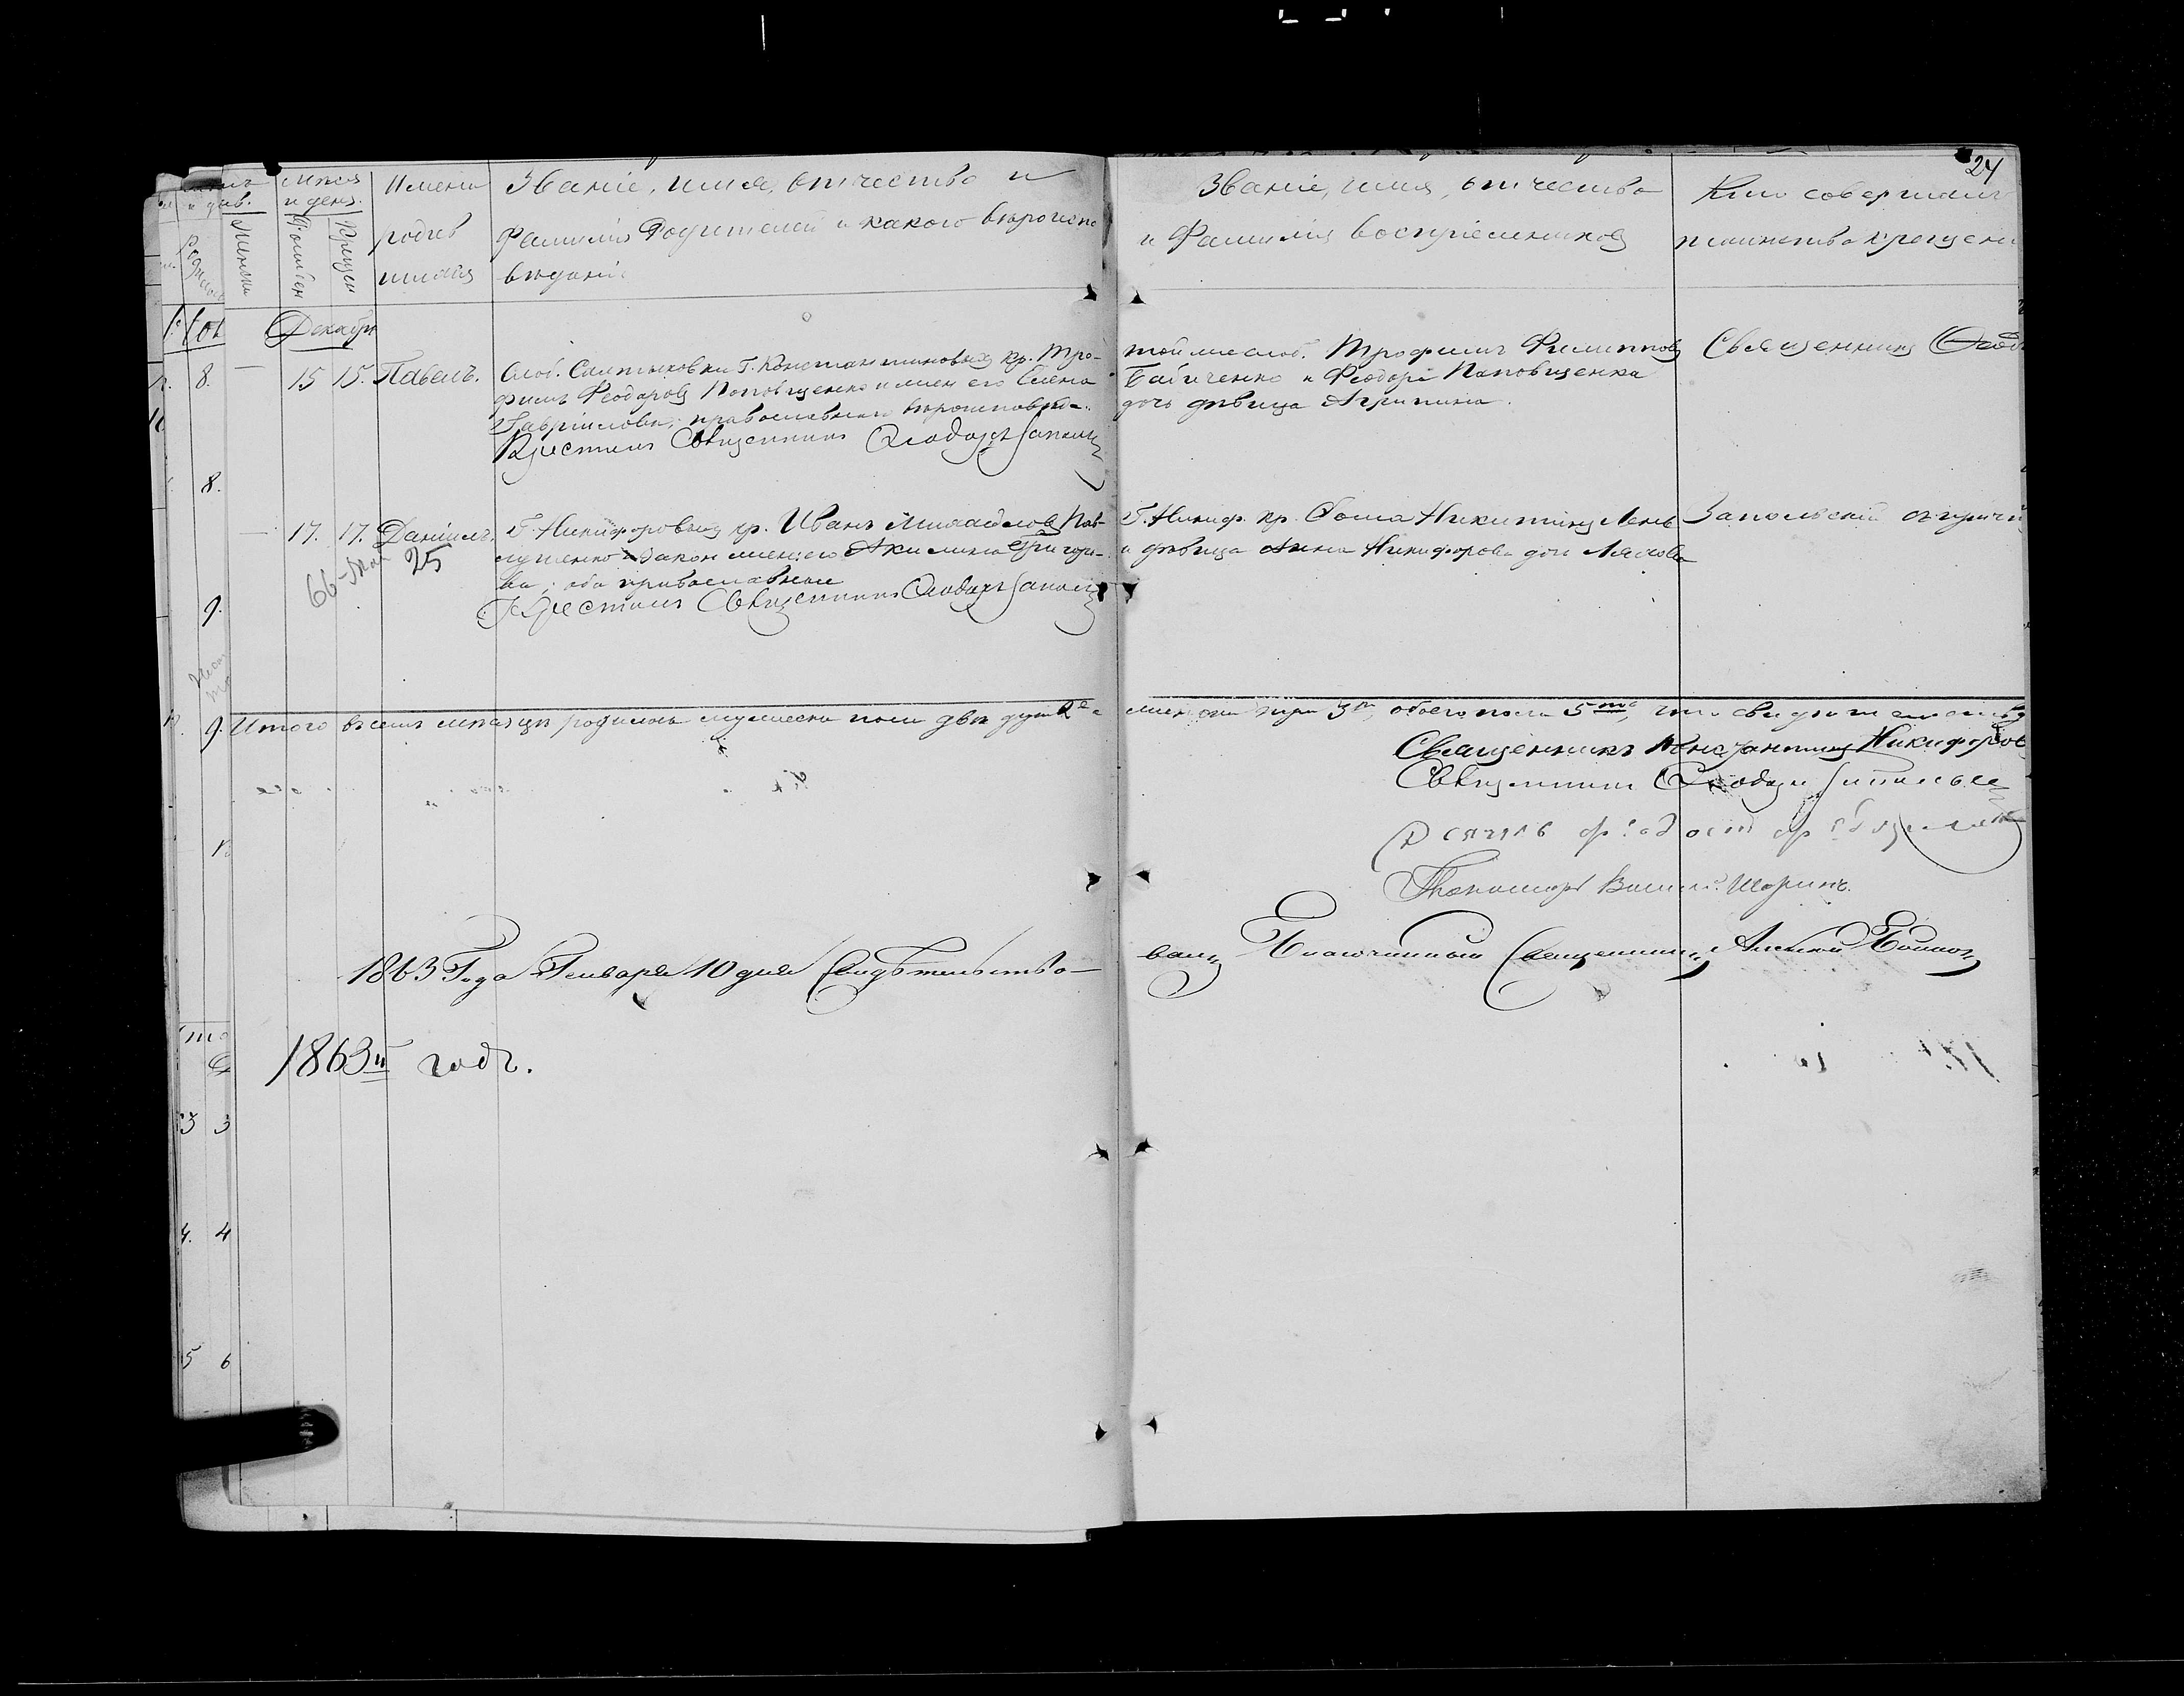 24
Мѣся
и день.
Имена
родив
шихся
Званіе, имя, отчество и
Фамилія Родителей и какого вѣроиспо
вѣданія
Званіе, имя, отчество
и Фамилія воспріемниковъ
Кто совершалъ
таинство крещенія
Рожден
Крещен
Женска
Декабрь
8. — 15 15. Павелъ.
Слоб. Салтыковки Г. Константиновыхъ кр. Тро-
фимъ Феодоровъ Поповиченко и жен его Елена
Гавріилова, православнаго вѣроисповѣда.
Крестилъ Священникъ Феодоръ Запольскій
той же слоб. Трофимъ Филипповъ
Бабиченко и Феодора Поповиченка
дочь дѣвица Агрипина.
Священникъ Феод
8.
— 17. 17. Даніилъ.
66 - Мая 25
Г. Никифоровыхъ кр. Иванъ Михайловъ Пав-
лученко и закон жен его Акилина Григорь-
ва; оба православные
Крестилъ Священникъ Феодоръ Запольскій
Г. Никиф. кр. Ѳома Никитинъ
и дѣвица Анна Никифорова дочь Ляхова
Запольскій съ причт
9.
9. Итого въ семъ мѣсяцѣ родилось мужеска пола двѣ души 2е
женска три 3и, обоего пола 5ть, что свидѣтельству
Священникъ Константинъ Никифоров
Священникъ Феодоръ Запольскій
Пономарь Васил. Шоринъ.
1863 Года Генваря 10 дня Свидѣтельство-
валъ Благочинный Священникъ Алексей
1863й годъ.
3 3
4. 4
5 6